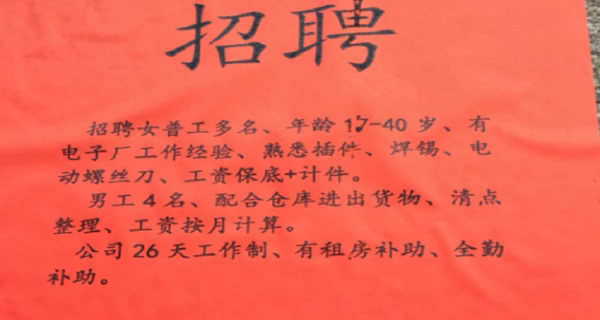 招聘
招聘女普工多名、年龄17-40岁、有
电子厂工作经验、熟悉插件、焊锡、电
动螺丝刀、工资保底+计件。
男工4名、配合仓库进出货物、清点
整理、工资按月计算。
公司26天工作制、有租房补助、全勤
补助。